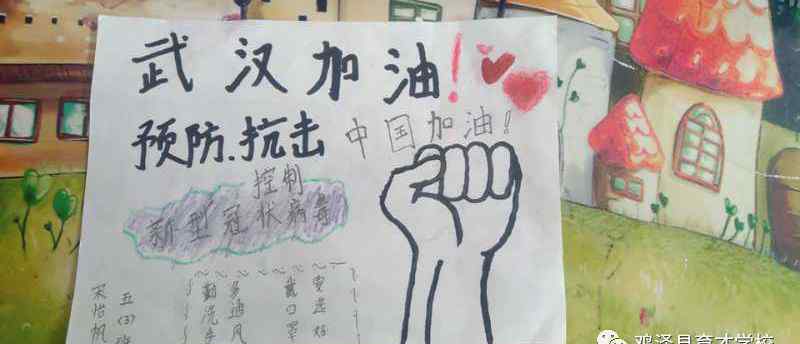 武汉加油!
预防.抗击
中国加油!
控制
新型冠状病毒
五(3)班
宋怡帆
勤洗手
多通风
戴口罩
鸡泽县育才学校